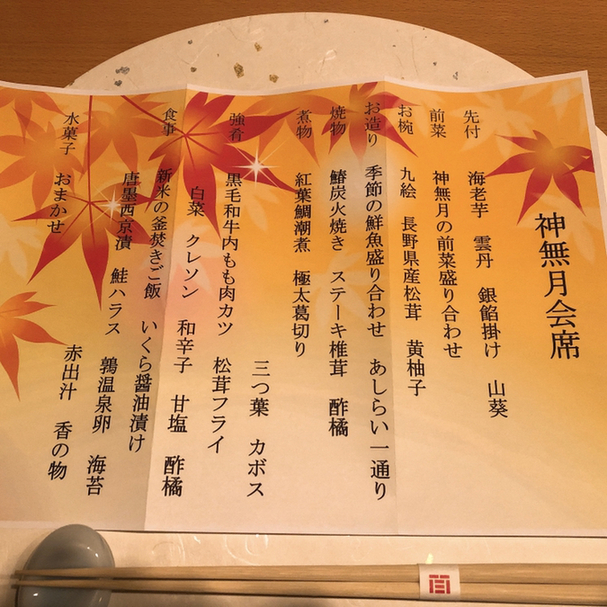 神無月会席
先付　海老芋　雲丹　銀餡掛け　山葵
前菜　神無月の前菜盛り合わせ
お椀　九絵　長野県産松茸　黄柚子
お造り　季節の鮮魚盛り合わせ　あしらい一通り
焼物　鰆炭火焼き　ステーキ椎茸　酢橘
煮物　紅葉鯛潮煮　極太葛切り
三つ葉　カボス
強肴　黒毛和牛内もも肉カツ　松茸フライ
白菜　クレソン　和辛子　甘塩　酢橘
食事　新米の釜焚きご飯　いくら醤油漬け
唐墨西京漬　鮭ハラス　鶉温泉卵　海苔
赤出汁　香の物
水菓子　おまかせ